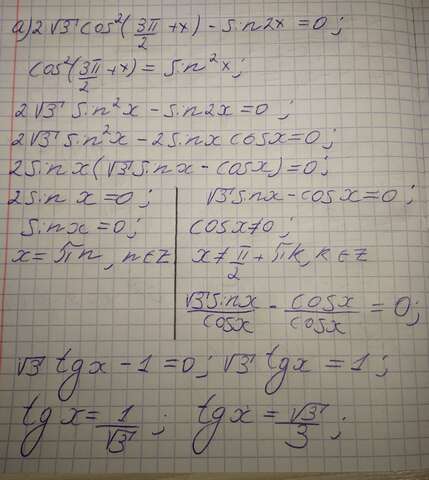 а) 2√3 cos²(3π/2 + x) - sin2x = 0;
cos²(3π/2 + x) = sin²x;
2√3 sin²x - sin2x = 0;
2√3 sin²x - 2sinx cosx = 0;
2sinx(√3 sinx - cosx) = 0;
2sin x = 0; √3 sinx - cosx = 0;
sinx = 0; cosx ≠ 0;
x = πn, n∈Z x ≠ π/2 + πk, k∈Z
√3 sinx/cosx - cosx/cosx = 0;
√3 tgx - 1 = 0; √3 tgx = 1;
tgx = 1/√3; tgx = √3/3;